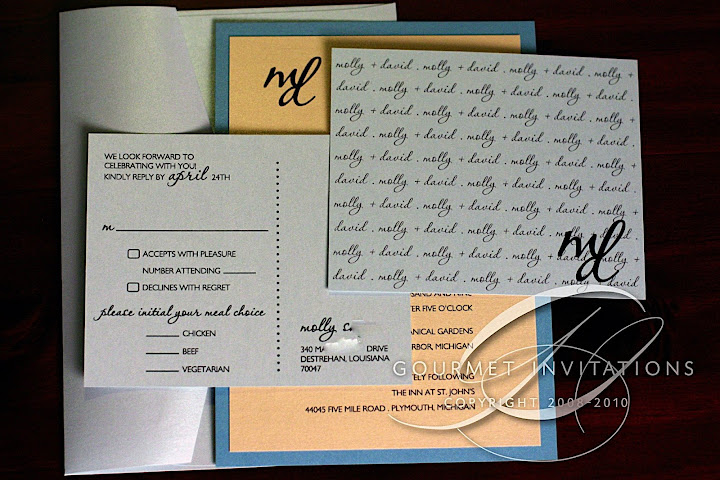 md
molly + david . molly + david . molly + david . molly +
david . molly + david . molly + david . molly + david .
molly + david . molly + david . molly + david . molly +
david . molly + david . molly + david . molly + david .
molly + david . molly + david . molly + david . molly +
david . molly + david . molly + david . molly + david .
molly + david . molly + david . molly + david . molly +
david . molly + david . molly + david . molly + david .
molly + david . molly + david . molly + david . molly +
david . molly + david . molly + david . molly + david
md
WE LOOK FORWARD TO
CELEBRATING WITH YOU!
KINDLY REPLY BY april 24TH
m
ACCEPTS WITH PLEASURE
NUMBER ATTENDING
DECLINES WITH REGRET
please initial your meal choice
CHICKEN
BEEF
VEGETARIAN
molly
340 DRIVE
DESTREHAN, LOUISIANA
70047
FIVE O'CLOCK
GARDENS
MICHIGAN
FOLLOWING
THE INN AT ST. JOHN'S
44045 FIVE MILE ROAD . PLYMOUTH, MICHIGAN
GOURMET INVITATIONS
COPYRIGHT 2008-2010